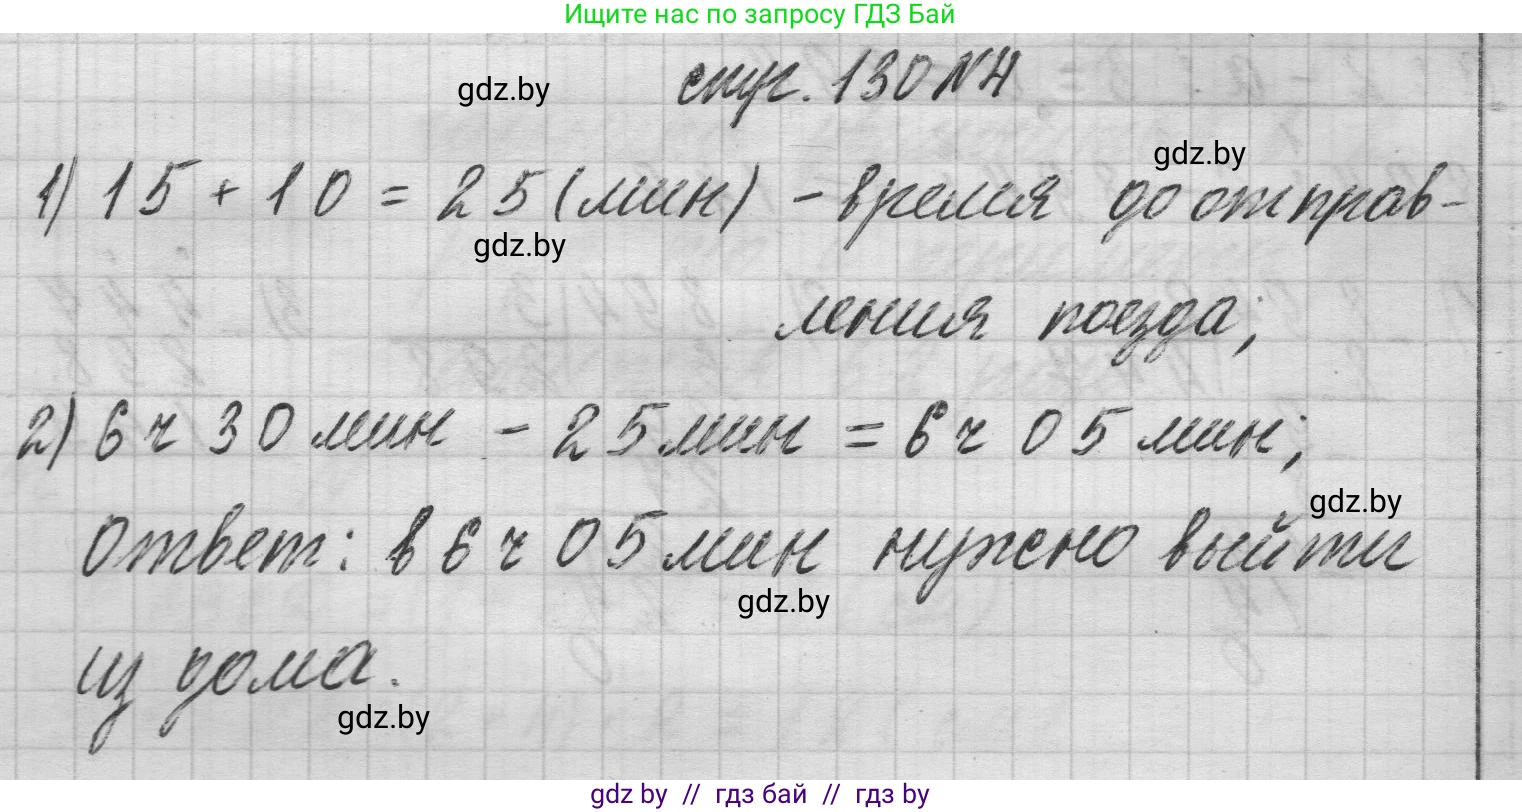 Ищите нас по запросу ГДЗ Бай
gdz.by
стр. 130 N4
gdz.by
1) 15 + 10 = 25 (мин) - время до отправ-
gdz.by
ления поезда;
2) 6 ч 30 мин - 25 мин = 6 ч 05 мин;
gdz.by
Ответ: в 6 ч 05 мин нужно выйти
gdz.by
из дома.
gdz.by
gdz by // гдз бай // гдз by